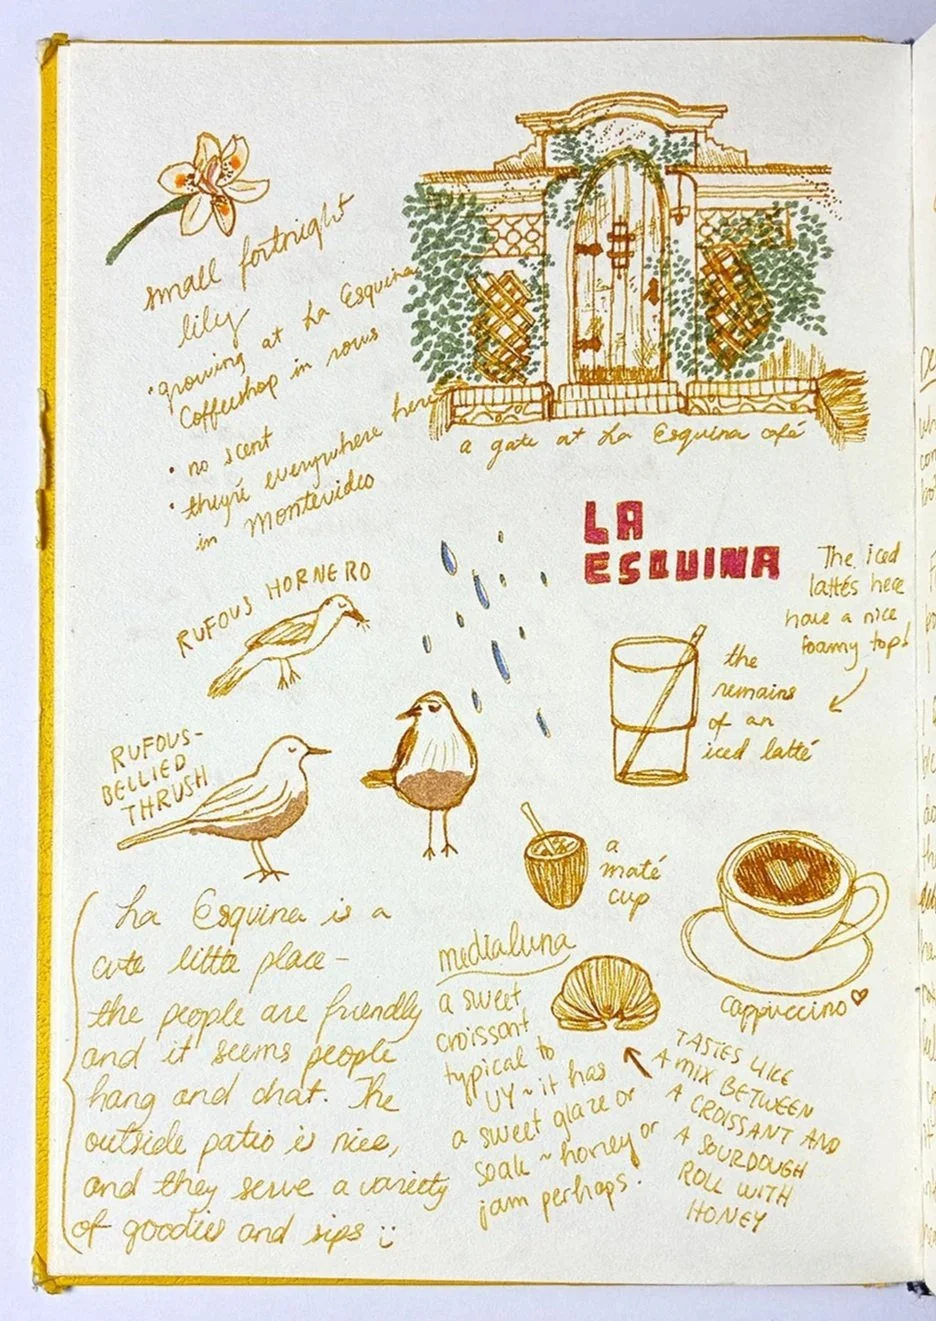 small fortnight
lily
• growing at La Esquina
Coffeeshop in rows
• no scent
• they're everywhere here
in Montevideo
a gate at La Esquina café
LA
ESQUINA
The iced
lattés here
have a nice
foamy top!
the
remains
of an
iced latté
RUFOUS HORNERO
RUFOUS-
BELLIED
THRUSH
a
maté
cup
cappuccino
La Esquina is a
cute little place-
the people are friendly
and it seems people
hang and chat. The
outside patio is nice,
and they serve a variety
of goodies and sips :)
medialuna
a sweet
croissant
typical to
UY ~ it has
a sweet glaze or
soak ~ honey or
jam perhaps.
TASTES LIKE
A MIX BETWEEN
A CROISSANT AND
A SOURDOUGH
ROLL WITH
HONEY